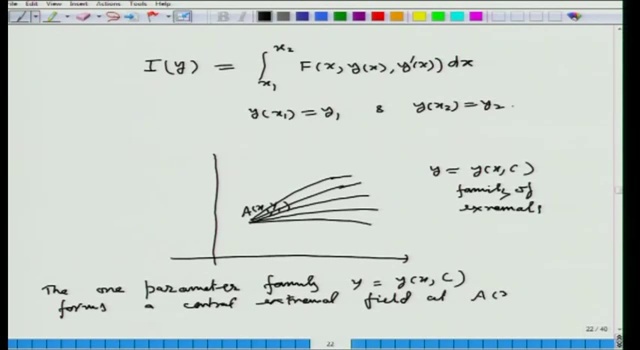 Edit View Insert Actions Tools Help
I(y) = ∫_{x₁}^{x₂} F(x, y(x), y'(x)) dx
y(x₁) = y₁ & y(x₂) = y₂.
y = y(x, C)
family of
exremals
A(x₁, y₁)
The one parameter family y = y(x, C)
forms a central extremal field at A(x
22 / 40
22